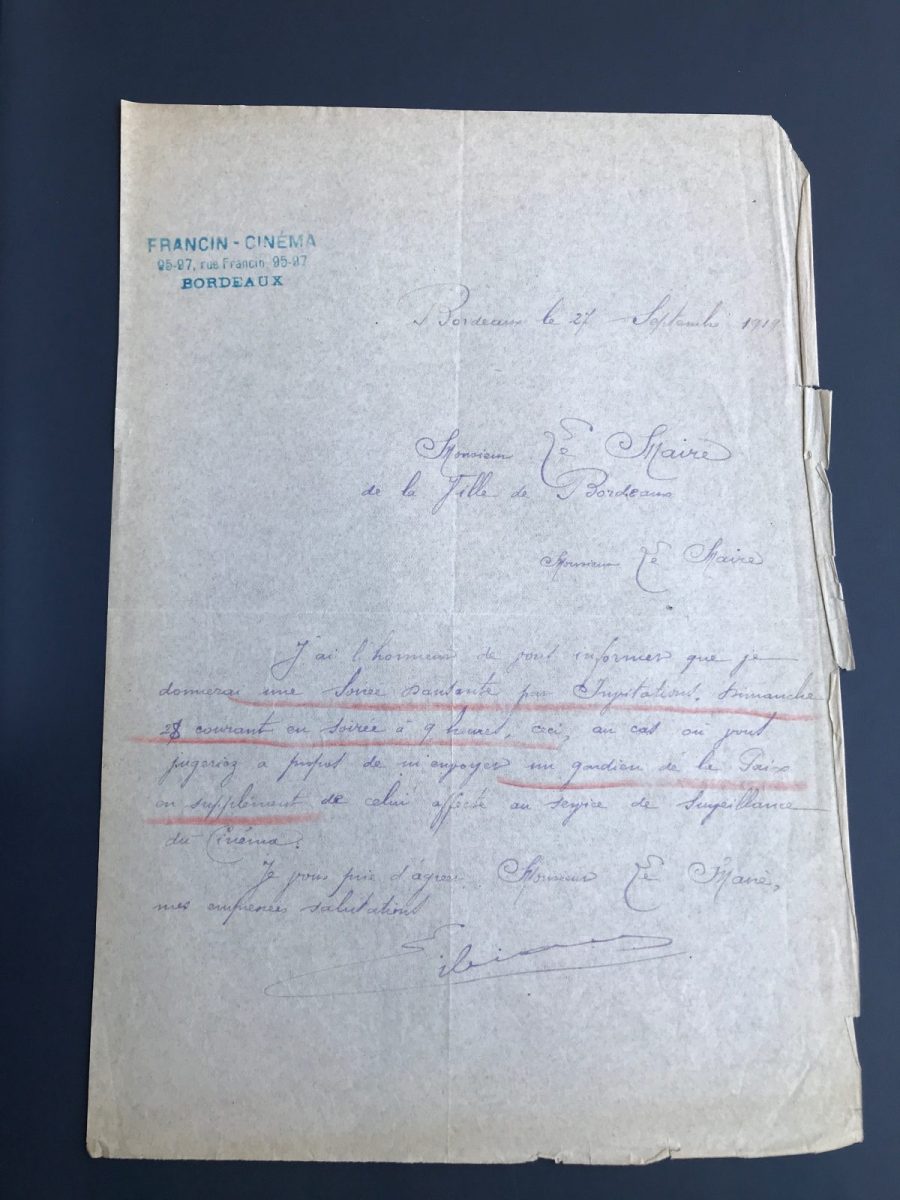 FRANCIN - CINÉMA
95-97, rue Francin, 95-97
BORDEAUX
Bordeaux le 27 Septembre 1919
Monsieur Le Maire
de la Ville de Bordeaux
Monsieur Le Maire
J'ai l'honneur de vous informer que je
donnerai une Soirée dansante par Invitations. Dimanche
28 courant en soirée à 9 heures, ceci, au cas où vous
jugeriez a propos de m'envoyer un gardien de la Paix
en supplément de celui affecté au service de Surveillance
du Cinéma.
Je vous prie d'agréer Monsieur Le Maire,
mes empressées salutations